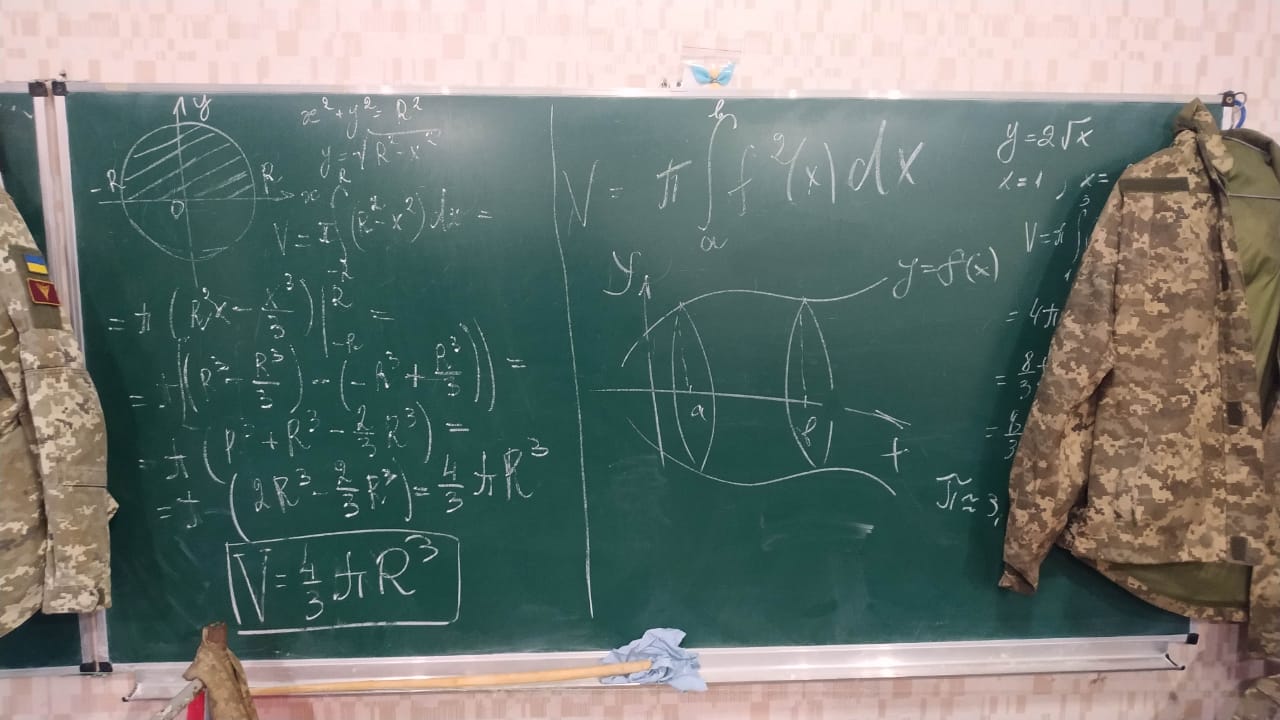 y
x² + y² = R²
y = √R² - x²
-R R x
0
V = π ∫ (R² - x²) dx =
= π (R²x - x³/3) | R -R =
= π ((R³ - R³/3) - (-R³ + R³/3)) =
= π (R³ + R³ - 2/3 R³) =
= π (2R³ - 2/3 R³) = 4/3 πR³
V = 4/3 πR³
V = π ∫ₐᵇ f²(x) dx
y
y = f(x)
a b
x
y = 2√x
x = 1 , x =
V = π ∫
= 4π
= 8/3
π ≈ 3,